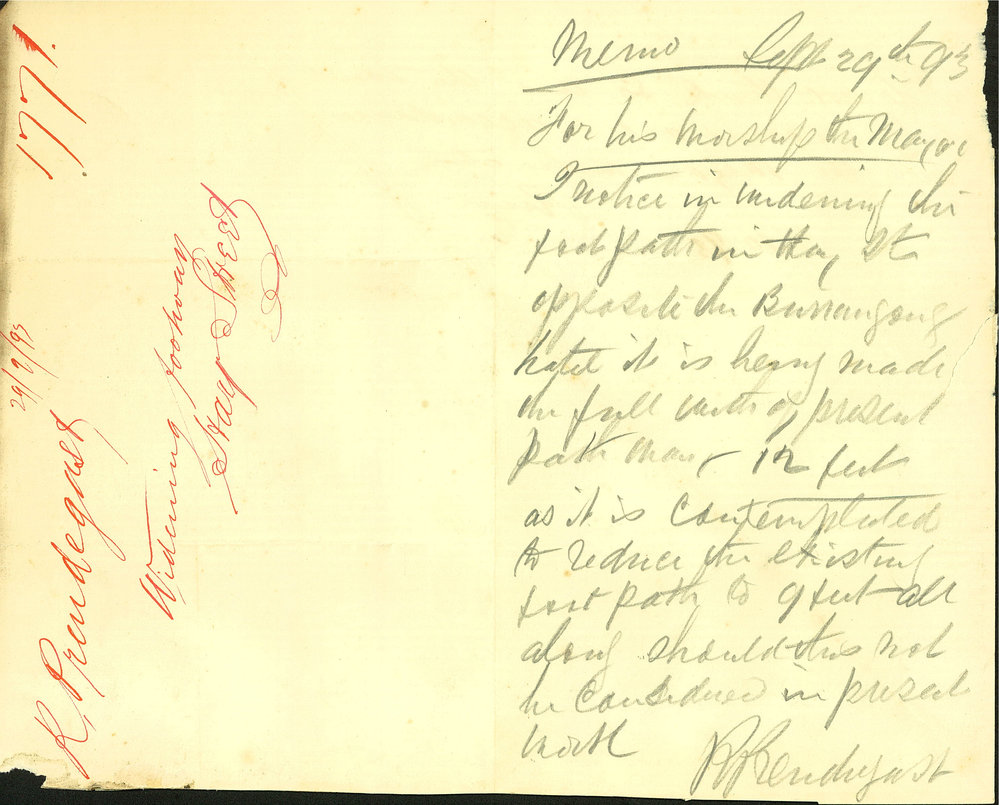 1771.
29/9/93
R. Prendegast
Widening footway
Hay Street
Memo Sept 29th 93
For his Worship the Mayor
I notice in widening the
foot path in Hay St
opposite the Burrangong
hotel it is being made
the full width of present
path way - 12 feet
as it is contemplated
to reduce the existing
foot path to 9 feet all
along should this not
be considered in present
work
R Prendegast